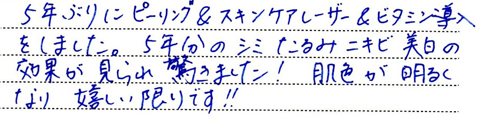 5年ぶりにピーリング&スキンケアレーザー&ビタミン導入
をしました。5年分のシミ たるみ ニキビ 美白の
効果が見られ驚きました! 肌色が明るく
なり 嬉しい限りです!!